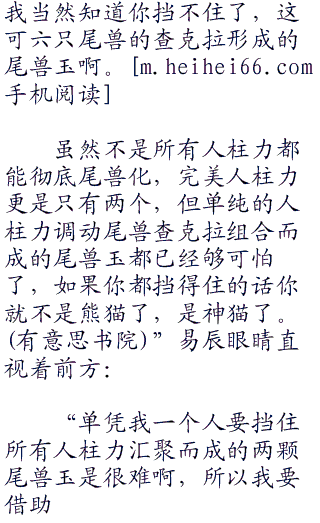 我当然知道你挡不住了，这
可六只尾兽的查克拉形成的
尾兽玉啊。[m.heihei66.com
手机阅读]
虽然不是所有人柱力都
能彻底尾兽化，完美人柱力
更是只有两个，但单纯的人
柱力调动尾兽查克拉组合而
成的尾兽玉都已经够可怕
了，如果你都挡得住的话你
就不是熊猫了，是神猫了。
(有意思书院)”易辰眼睛直
视着前方：
“单凭我一个人要挡住
所有人柱力汇聚而成的两颗
尾兽玉是很难啊，所以我要
借助